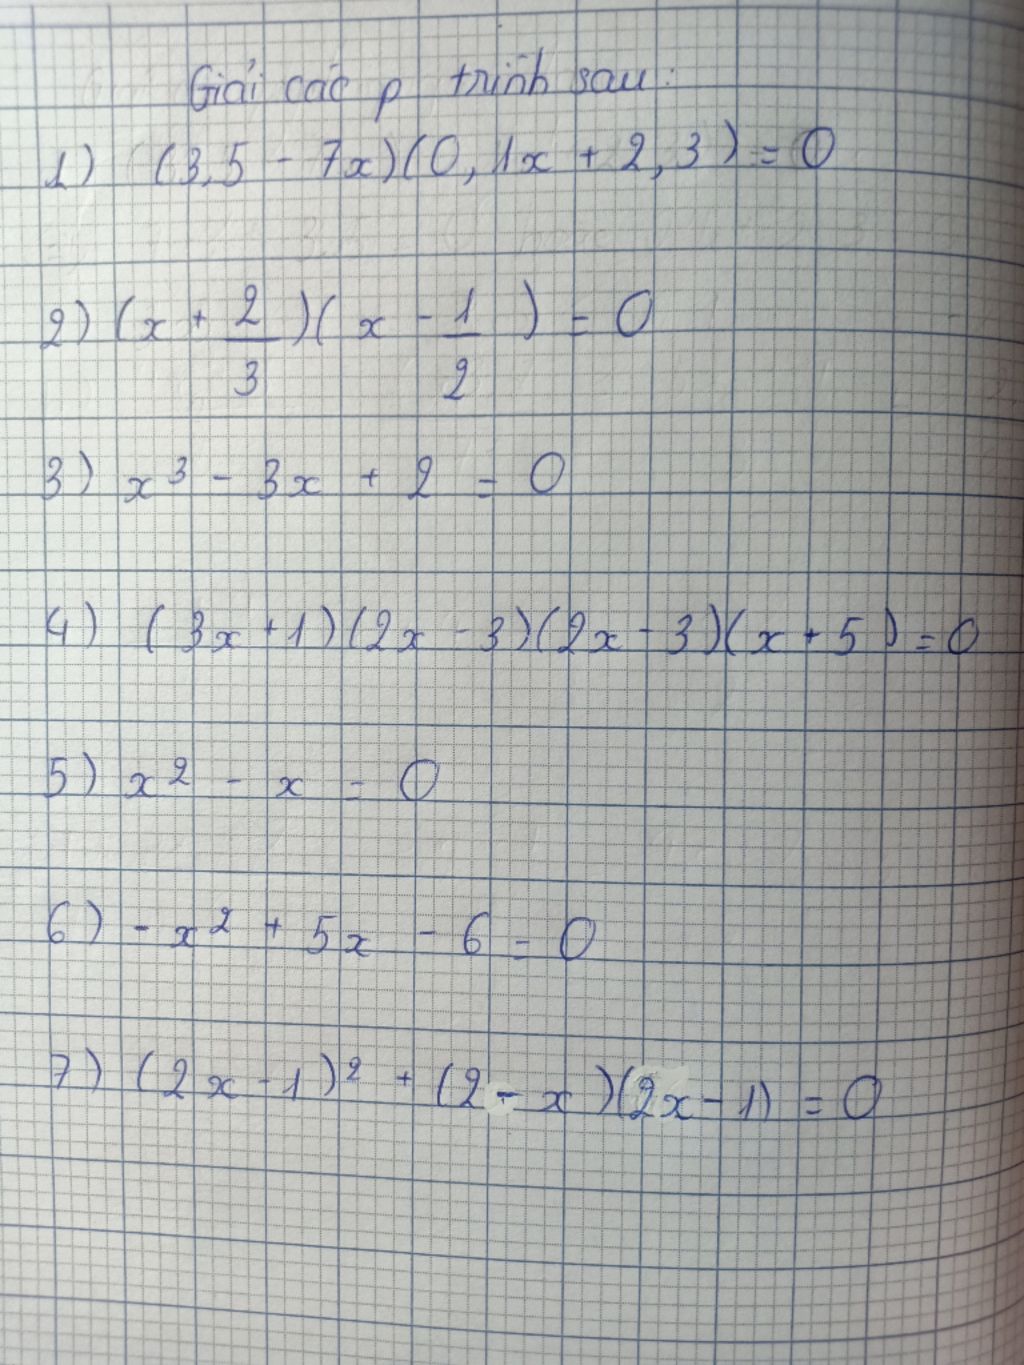 Giải các p trình sau:
1) (3,5 - 7x)(0,1x + 2,3) = 0
2) (x + 2/3)(x - 1/2) = 0
3) x³ - 3x + 2 = 0
4) (3x + 1)(2x - 3)(2x - 3)(x + 5) = 0
5) x² - x = 0
6) - x² + 5x - 6 = 0
7) (2x - 1)² + (2 - x)(2x - 1) = 0